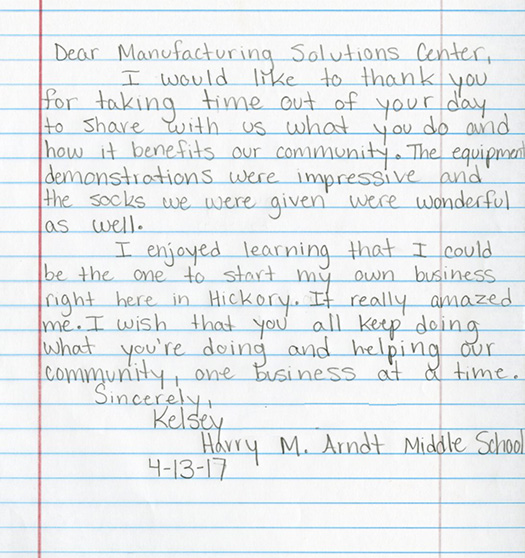 Dear Manufacturing Solutions Center,
I would like to thank you
for taking time out of your day
to share with us what you do and
how it benefits our community. The equipment
demonstrations were impressive and
the socks we were given were wonderful
as well.
I enjoyed learning that I could
be the one to start my own business
right here in Hickory. It really amazed
me. I wish that you all keep doing
what you're doing and helping our
community, one business at a time.
Sincerely,
Kelsey
Harry M. Arndt Middle School
4-13-17